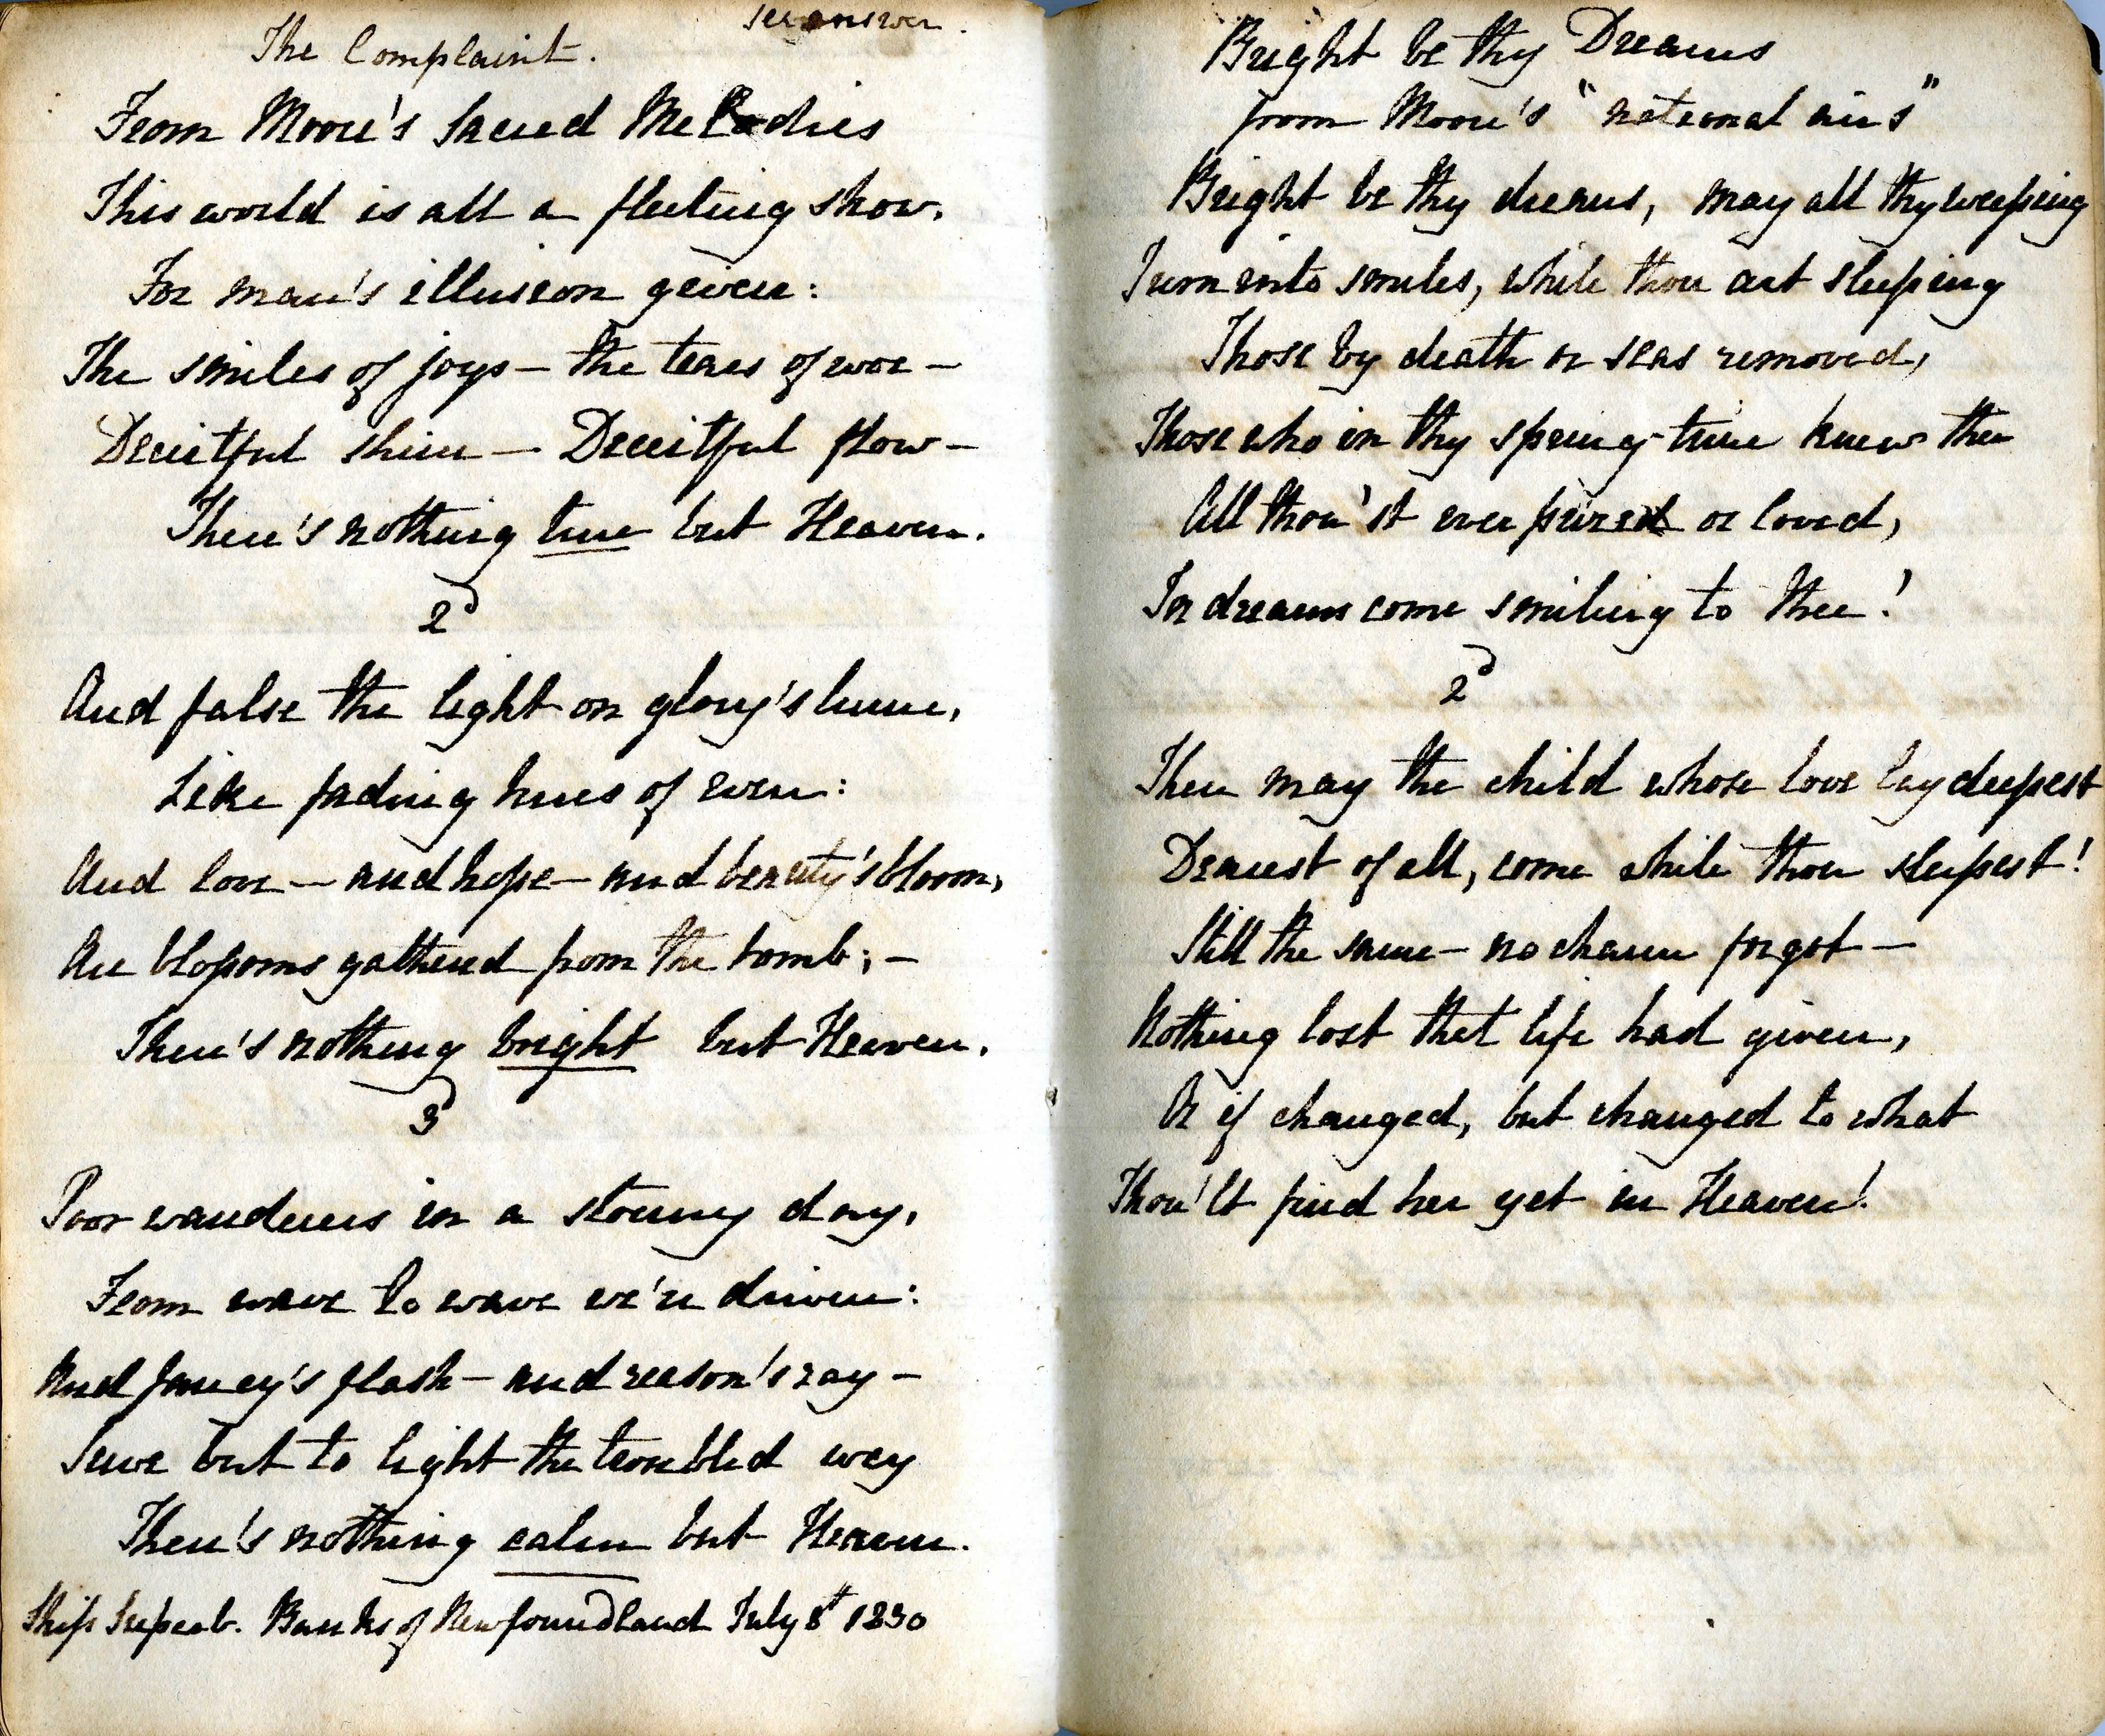 The Complaint.
From Moore's Sacred Melodies
This world is all a fleeting show,
For man's illusion given:
The smiles of joys – the tears of woe –
Deceitful shine – Deceitful flow –
There's nothing true but Heaven.
2d
And false the light on glory's lume,
Like fading hues of even:
And love – and hope – and beauty's bloom,
Are blossoms gathered from the tomb; –
There's nothing bright but Heaven.
3d
Poor wanderers in a stormy day,
From wave to wave we're driven:
And fancy's flash – and reason's ray –
Serve but to light the troubled way
There's nothing calm but Heaven.
Ship Superb. Banks of Newfoundland July 8th 1830
Bright be thy Dreams
from Moore's "national airs"
Bright be thy dreams, may all thy weeping
Turn into smiles, while thou art sleeping
Those by death or seas removed,
Those who in thy spring-time knew thee
All thou'st ever prized or loved,
In dreams come smiling to thee!
2d
There may the child whose love lay deepest
Dearest of all, come while thou sleepest!
Still the same – no charm forgot –
Nothing lost that life had given,
Or if changed, but changed to what
Thou'lt find her yet in Heaven!